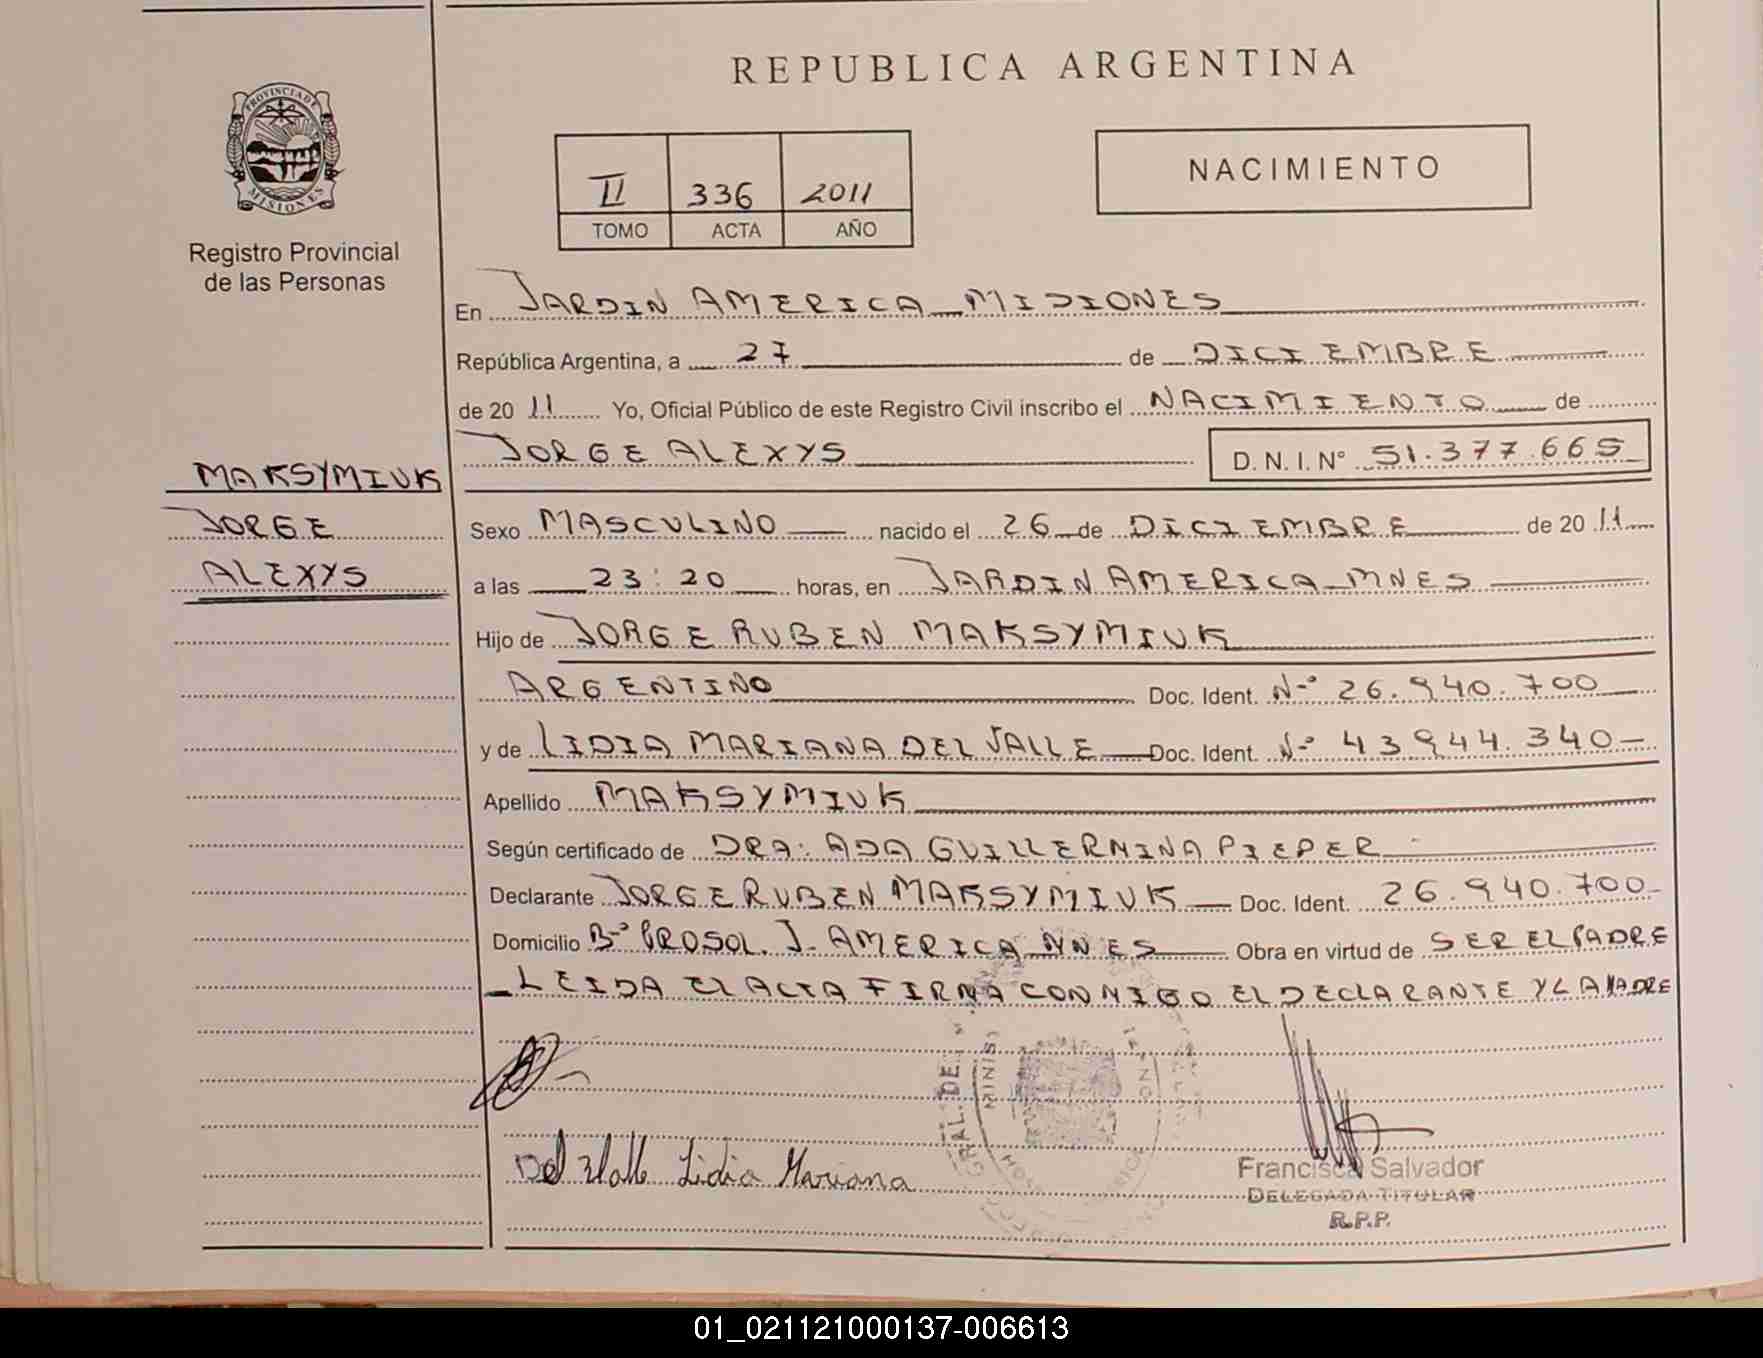 REPUBLICA ARGENTINA
PROVINCIA DE
MISIONES
Registro Provincial
de las Personas
II 336 2011
TOMO ACTA AÑO
NACIMIENTO
En JARDIN AMERICA MISIONES
República Argentina, a 27 de DICIEMBRE
de 20 11 Yo, Oficial Público de este Registro Civil inscribo el NACIMIENTO de
JORGE ALEXYS D. N. I. N° 51.377.665
MAKSYMIUK
JORGE
ALEXYS
Sexo MASCULINO nacido el 26 de DICIEMBRE de 20 11
a las 23:20 horas, en JARDIN AMERICA - MNES
Hijo de JORGE RUBEN MAKSYMIUK
ARGENTINO Doc. Ident. N-° 26.940.700
y de LIDIA MARIANA DEL VALLE Doc. Ident. N-° 43944.340
Apellido MAKSYMIUK
Según certificado de DRA: ADA GUILLERMINA PIEPER
Declarante JORGE RUBEN MAKSYMIUK Doc. Ident. 26.940.700
Domicilio B-° PROSOL. J. AMERICA MNES Obra en virtud de SER EL PADRE
LEIDA EL ACTA FIRMA CONMIGO EL DECLARANTE Y LA MADRE
GRAL. DE
MINIS
Del Valle Lidia Mariana
Francisca Salvador
DELEGADA TITULAR
R.P.P.
01_021121000137-006613